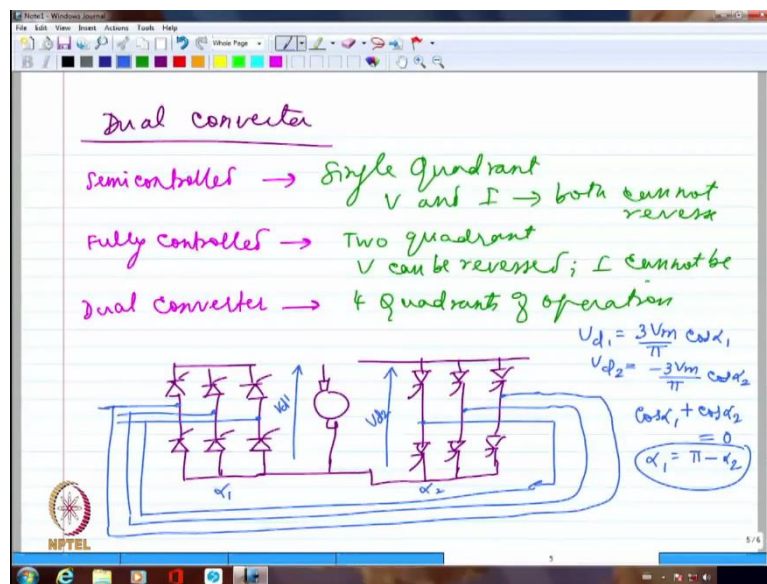 Note1 - Windows Journal
File Edit View Insert Actions Tools Help
Whole Page
B I
Dual converter
Semicontrolled → Single Quadrant
V and I → both cannot
reverse
Fully controlled → Two quadrant
V can be reversed; I cannot be
Dual converter → 4 Quadrants of operation
Vd1 = 3Vm/π cosα1
Vd2 = -3Vm/π cosα2
cosα1 + cosα2
= 0
α1 = π - α2
Vd1
Vd2
α1
α2
NPTEL
5/6
5